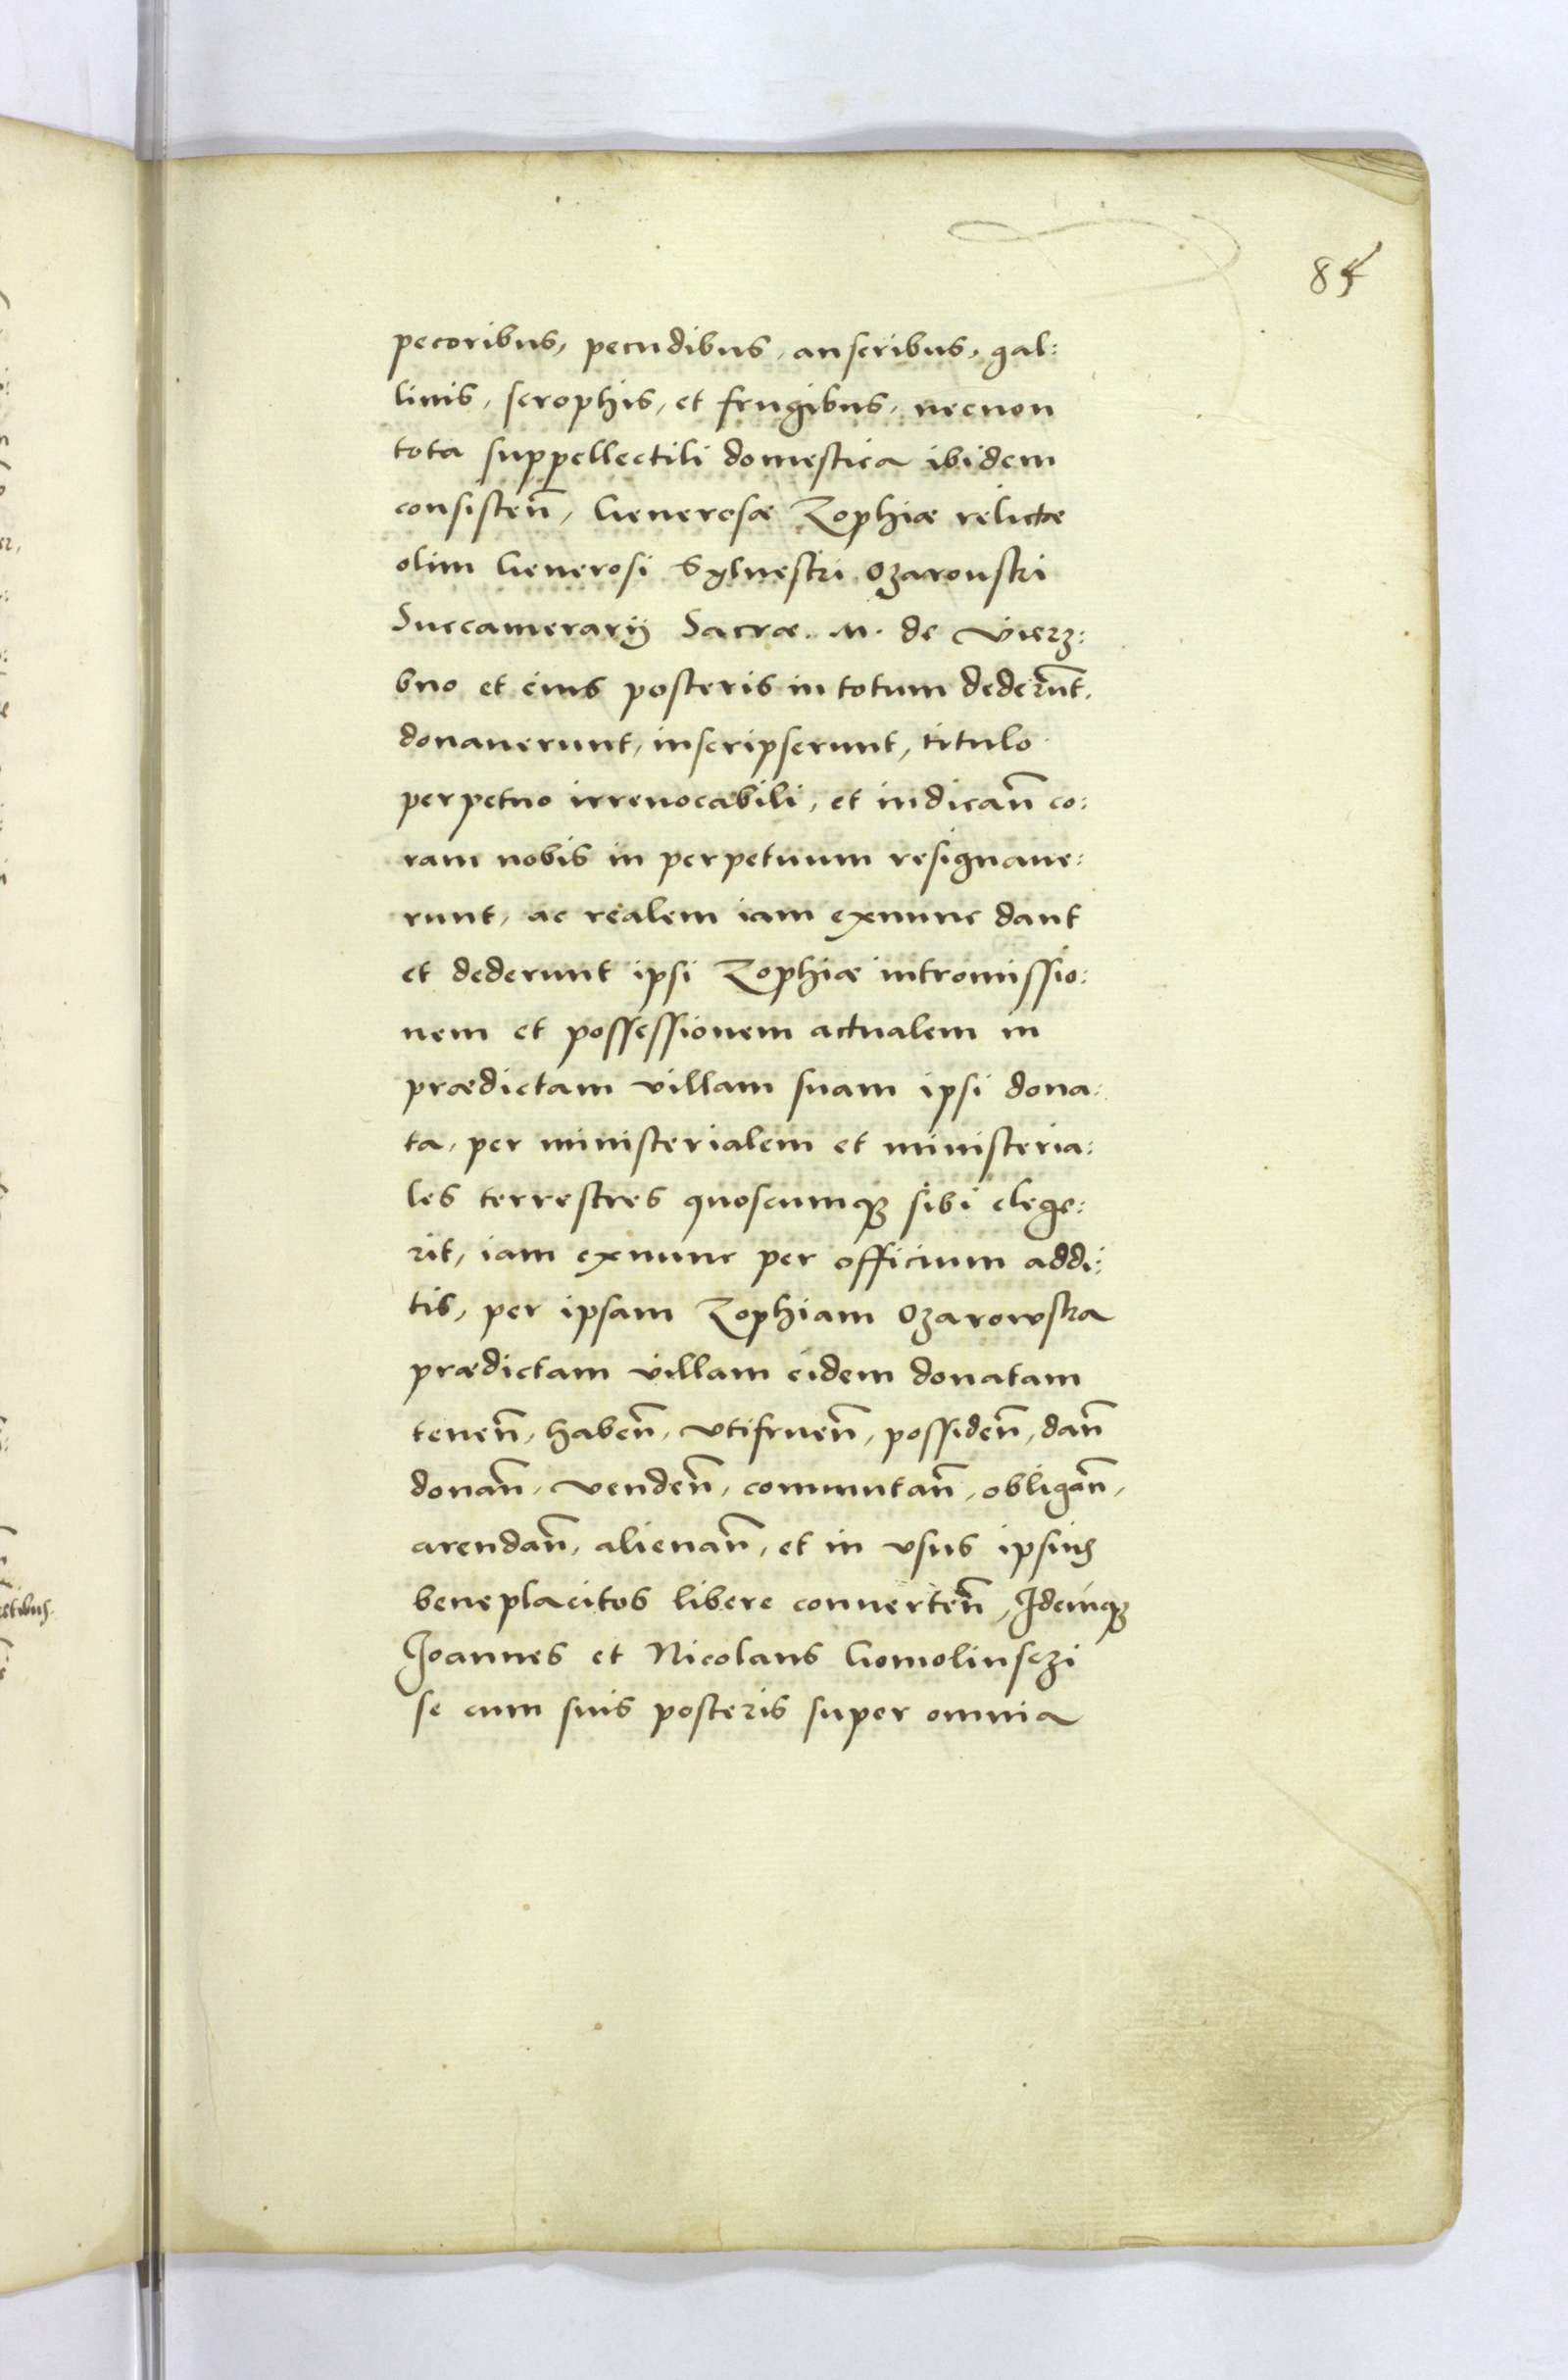 84
pecoribus, pecudibus, anseribus, gal:
linis, scrophis, et frugibus, necnon
tota suppellectili domestica ibidem
consisteñ, Generosæ Zophiæ relictæ
olim Generosi Syluestri Ozarouski
Succamerarij Sacræ. M. de Vierz:
bno et eius posteris in totum dederūt,
donauerunt, inscripserunt, titulo
perpetuo irreuocabili, et indicañ co:
ram nobis in perpetuum resignaue:
runt, ac realem iam exnunc dant
et dederunt ipsi Zophiæ intromissio:
nem et possessionem actualem in
prædictam villam suam ipsi dona:
ta, per ministerialem et ministeria:
les terrestres quoscumqȝ sibi elege:
rit, iam exnunc per officium addi:
tis, per ipsam Zophiam Ozarowska
prædictam villam eidem donatam
teneñ, habeñ, vtifrueñ, possideñ, dañ
donañ, vendeñ, commutañ, obligañ,
arendañ, alienañ, et in vsus ipsius
beneplacitos libere conuerteñ, Idemqȝ
Joannes et Nicolaus Gomolinsczi
se cum suis posteris super omnia